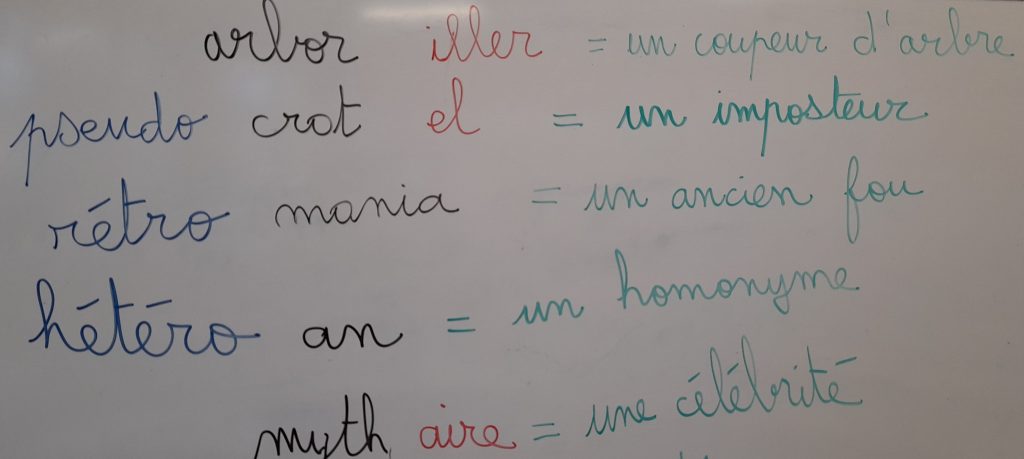 arbor iller = un coupeur d'arbre
pseudo crat el = un imposteur
rétro mania = un ancien fou
hétéro an = un homonyme
myth aire = une célébrité